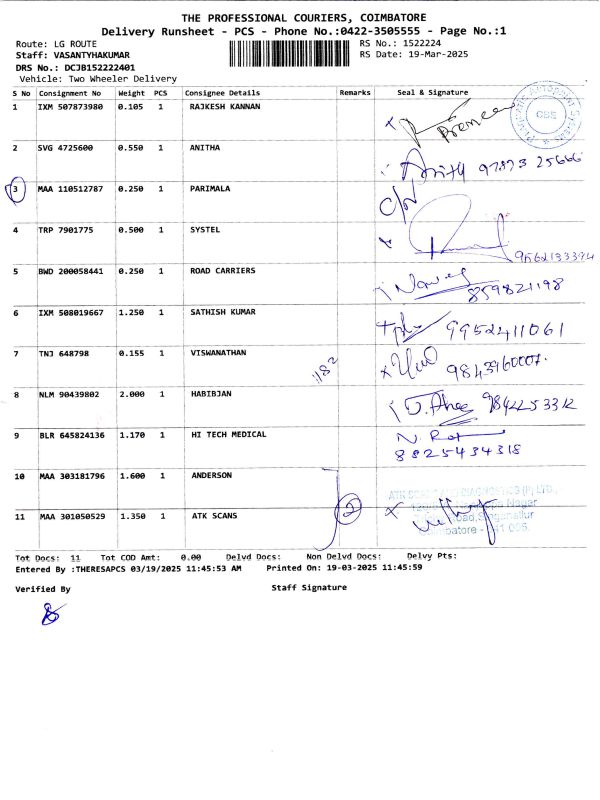 THE PROFESSIONAL COURIERS, COIMBATORE
Delivery Runsheet - PCS - Phone No.:0422-3505555 - Page No.:1
Route: LG ROUTE RS No.: 1522224
Staff: VASANTYHAKUMAR RS Date: 19-Mar-2025
DRS No.: DCJB152222401
Vehicle: Two Wheeler Delivery
S No Consignment No Weight PCS Consignee Details Remarks Seal & Signature
1 IXM 507873980 0.105 1 RAJKESH KANNAN
CBE
2 SVG 4725600 0.550 1 ANITHA 97873 25666
3 MAA 110512787 0.250 1 PARIMALA
4 TRP 7901775 0.500 1 SYSTEL
9562133394
5 BWD 200058441 0.250 1 ROAD CARRIERS
859821198
6 IXM 508019667 1.250 1 SATHISH KUMAR 9952411061
7 TNJ 648798 0.155 1 VISWANATHAN 1182
8 NLM 90439802 2.000 1 HABIBJAN
9 BLR 645824136 1.170 1 HI TECH MEDICAL
8825434318
10 MAA 303181796 1.600 1 ANDERSON
2
11 MAA 301050529 1.350 1 ATK SCANS
Tot Docs: 11 Tot COD Amt: 0.00 Delvd Docs: Non Delvd Docs: Delvy Pts:
Entered By :THERESAPCS 03/19/2025 11:45:53 AM Printed On: 19-03-2025 11:45:59
Verified By Staff Signature